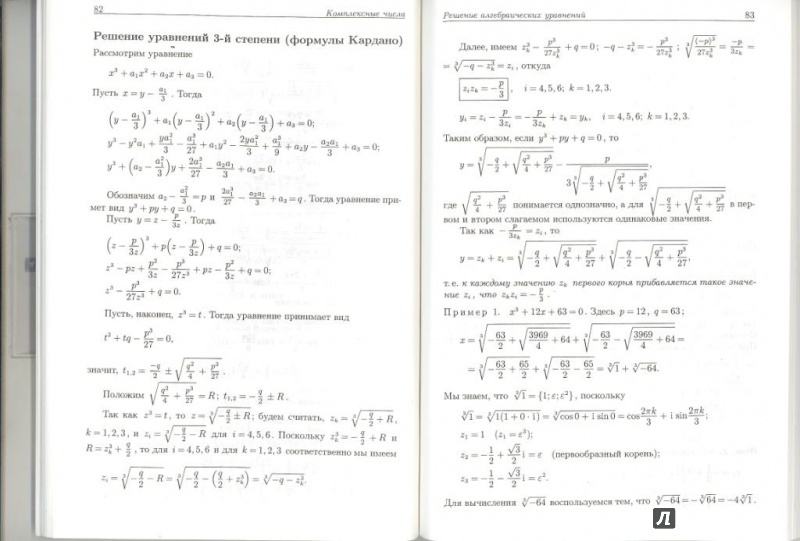 82 Комплексные числа
Решение уравнений 3-й степени (формулы Кардано)
Рассмотрим уравнение
x³ + a₁x² + a₂x + a₃ = 0.
Пусть x = y − a₁/3. Тогда
(y − a₁/3)³ + a₁(y − a₁/3)² + a₂(y − a₁/3) + a₃ = 0;
y³ − y²a₁ + ya₁²/3 − a₁³/27 + a₁y² − 2ya₁²/3 + a₁³/9 + a₂y − a₂a₁/3 + a₃ = 0;
y³ + (a₂ − a₁²/3)y + 2a₁³/27 − a₂a₁/3 + a₃ = 0.
Обозначим a₂ − a₁²/3 = p и 2a₁³/27 − a₂a₁/3 + a₃ = q. Тогда уравнение при-
мет вид y³ + py + q = 0.
Пусть y = z − p/3z. Тогда
(z − p/3z)³ + p(z − p/3z) + q = 0;
z³ − pz + p²/3z − p³/27z³ + pz − p²/3z + q = 0;
z³ − p³/27z³ + q = 0.
Пусть, наконец, z³ = t. Тогда уравнение принимает вид
t² + tq − p³/27 = 0,
значит, t₁,₂ = −q/2 ± √(q²/4 + p³/27)
Положим √(q²/4 + p³/27) = R; t₁,₂ = −q/2 ± R.
Так как z³ = t, то z = ∛(−q/2 ± R); будем считать, zₖ = ∛(−q/2 + R),
k = 1, 2, 3, и zᵢ = ∛(−q/2 − R) для i = 4, 5, 6. Поскольку zₖ³ = −q/2 + R и
R = zₖ³ + q/2, то для i = 4, 5, 6 и для k = 1, 2, 3 соответственно мы имеем
zᵢ = ∛(−q/2 − R) = ∛(−q/2 − (q/2 + zₖ³)) = ∛(−q − zₖ³).
Решение алгебраических уравнений 83
Далее, имеем zₖ³ − p³/27zₖ³ + q = 0; −q − zₖ³ = −p³/27zₖ³; ∛((−p)³/27zₖ³) = −p/3zₖ =
= ∛(−q − zₖ³) = zᵢ, откуда
zᵢzₖ = −p/3, i = 4, 5, 6; k = 1, 2, 3.
yᵢ = zᵢ − p/3zᵢ = −p/3zₖ + zₖ = yₖ, i = 4, 5, 6; k = 1, 2, 3.
Таким образом, если y³ + py + q = 0, то
y = ∛(−q/2 + √(q²/4 + p³/27)) − p/(3∛(−q/2 + √(q²/4 + p³/27))),
где √(q²/4 + p³/27) понимается однозначно, а для ∛(−q/2 + √(q²/4 + p³/27)) в пер-
вом и втором слагаемом используются одинаковые значения.
Так как −p/3zₖ = zᵢ, то
y = zₖ + zᵢ = ∛(−q/2 + √(q²/4 + p³/27)) + ∛(−q/2 − √(q²/4 + p³/27)),
т. е. к каждому значению zₖ первого корня прибавляется такое значе-
ние zᵢ, что zₖzᵢ = −p/3.
Пример 1. x³ + 12x + 63 = 0. Здесь p = 12, q = 63;
x = ∛(−63/2 + √(3969/4 + 64)) + ∛(−63/2 − √(3969/4 + 64)) =
= ∛(−63/2 + 65/2) + ∛(−63/2 − 65/2) = ∛1 + ∛−64.
Мы знаем, что ∛1 = {1; ε; ε²}, поскольку
∛1 = ∛(1(1 + 0 · i)) = ∛(cos 0 + i sin 0) = cos 2πk/3 + i sin 2πk/3;
z₁ = 1 (z₁ = ε³);
z₂ = −1/2 + √3/2 i = ε (первообразный корень);
z₃ = −1/2 − √3/2 i = ε².
Для вычисления ∛−64 воспользуемся тем, что ∛−64 = −∛64 = −4∛1.
Л